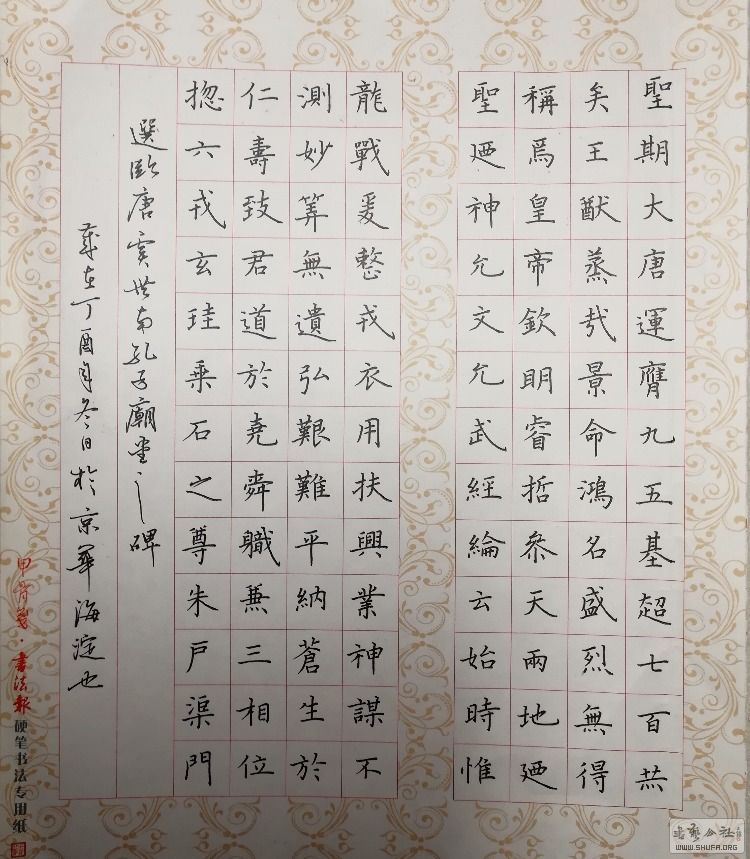 聖期大唐運膺九五基超七百赫
矣王猷蒸哉景命鴻名盛烈無得
稱焉皇帝欽明睿哲叅天兩地廼
聖廼神允文允武經綸云始時惟
龍戰爰整戎衣用扶興業神謀不
測妙筭無遺弘艱難平納蒼生於
仁壽致君道於堯舜職兼三相位
揔六戎玄珪乗石之尊朱戶渠門
選臨唐虞世南孔子廟堂之碑
歲在丁酉年冬日於京華海淀也
甲骨笺·書法報硬笔书法专用纸
书艺公社
WWW.SHUFA.ORG